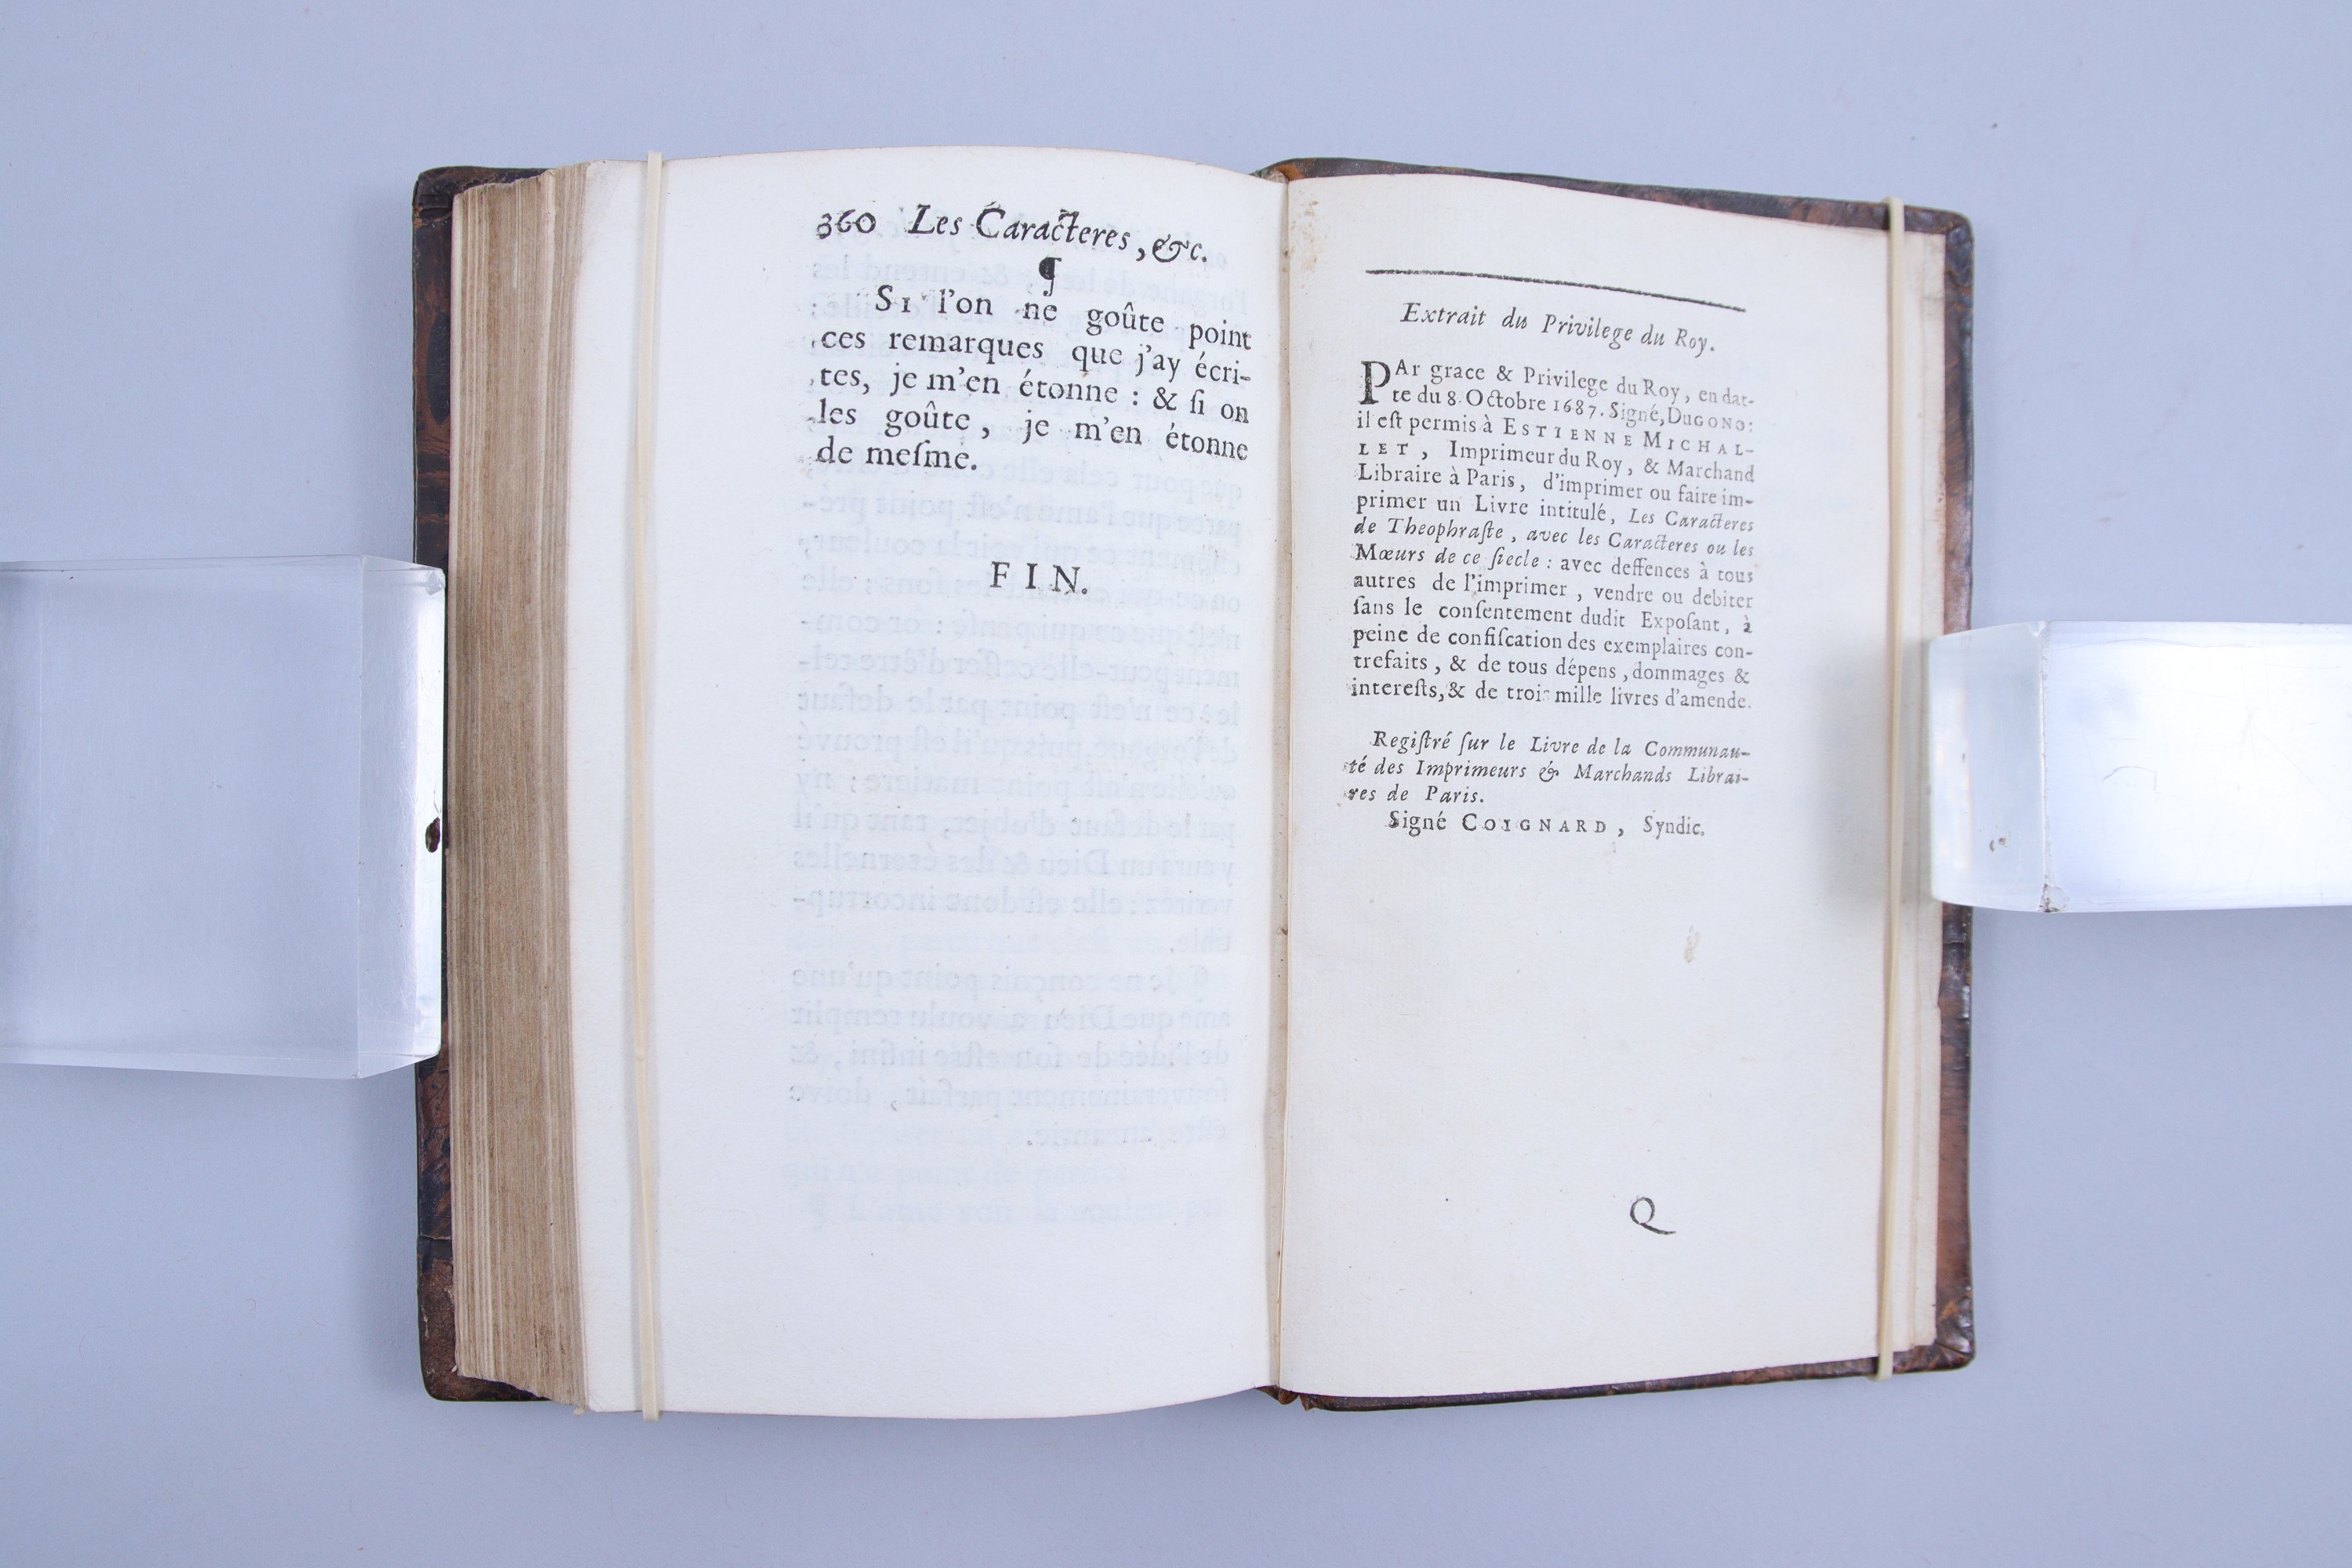 360 Les Caracteres, &c.
¶
SI l'on ne goûte point
ces remarques que j'ay écri-
tes, je m'en étonne : & ſi on
les goûte, je m'en étonne
de meſme.
FIN.
Extrait du Privilege du Roy.
PAr grace & Privilege du Roy, en dat-
te du 8. Octobre 1687. Signé, DUGONO:
il eſt permis à ESTIENNE MICHAL-
LET, Imprimeur du Roy, & Marchand
Libraire à Paris, d'imprimer ou faire im-
primer un Livre intitulé, Les Caracteres
de Theophraſte, avec les Caracteres ou les
Mœurs de ce ſiecle : avec deffences à tous
autres de l'imprimer, vendre ou debiter
ſans le conſentement dudit Expoſant, à
peine de confiſcation des exemplaires con-
trefaits, & de tous dépens, dommages &
intereſts, & de trois mille livres d'amende.
Regiſtré ſur le Livre de la Communau-
té des Imprimeurs & Marchands Librai-
res de Paris.
Signé COIGNARD, Syndic.
Q